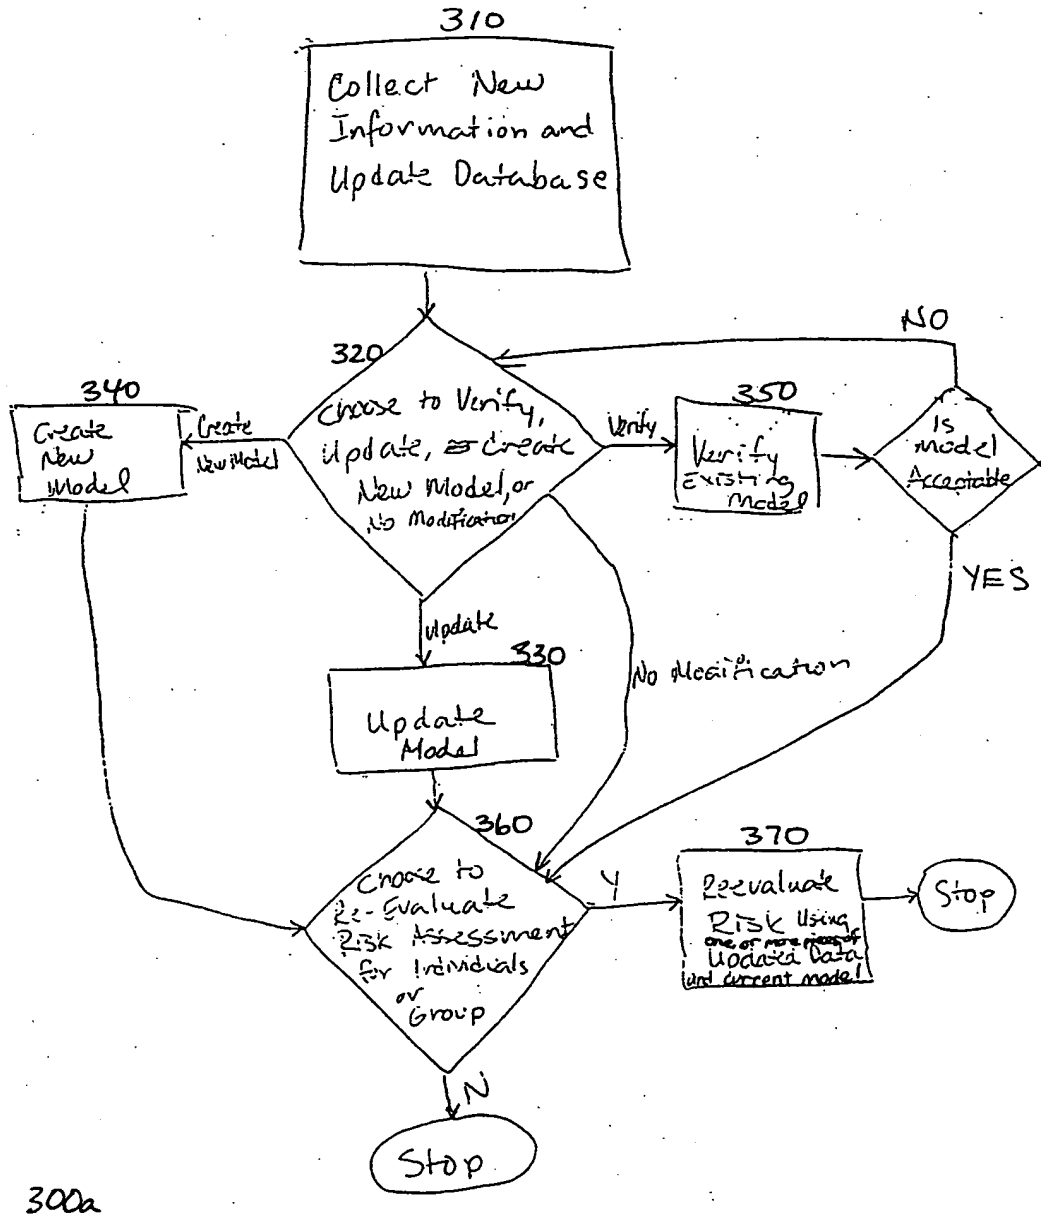 310
Collect New
Information and
Update Database
NO
320
340
350
Choose to Verify,
Update, or Create
New Model, or
No Modification
Create
New Model
Create
New
Model
Verify
Verify
Existing
Model
Is
Model
Acceptable
YES
Update
330
No Modification
Update
Model
360
370
Choose to
Re-Evaluate
Risk Assessment
for Individuals
or
Group
Y
Reevaluate
Risk Using
one or more pieces of
Updated Data
and current model
Stop
N
Stop
300a